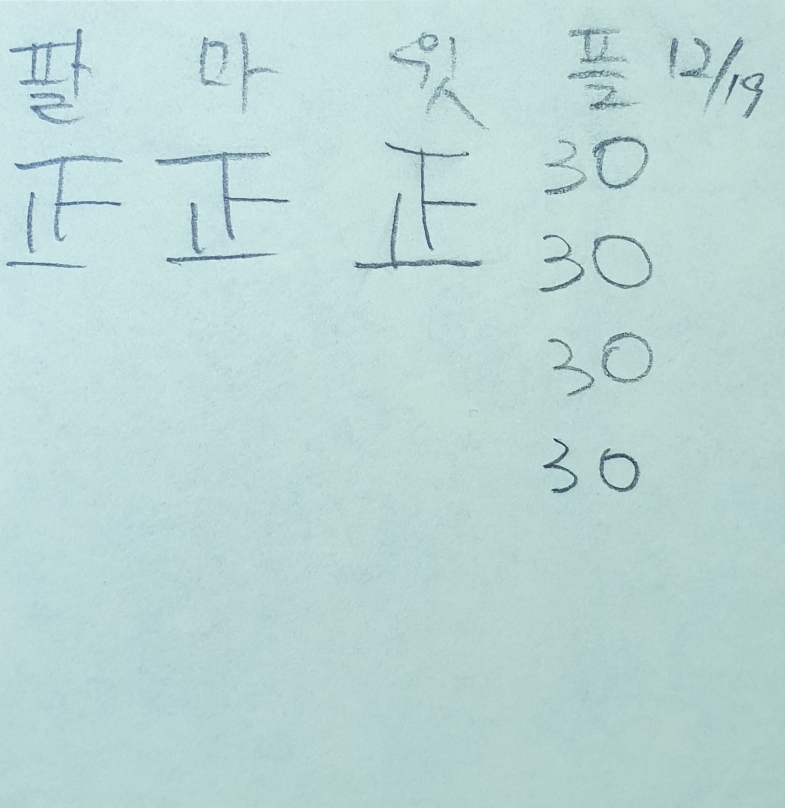 팔 마 윗 플 12/19
正 正 正 30
30
30
30